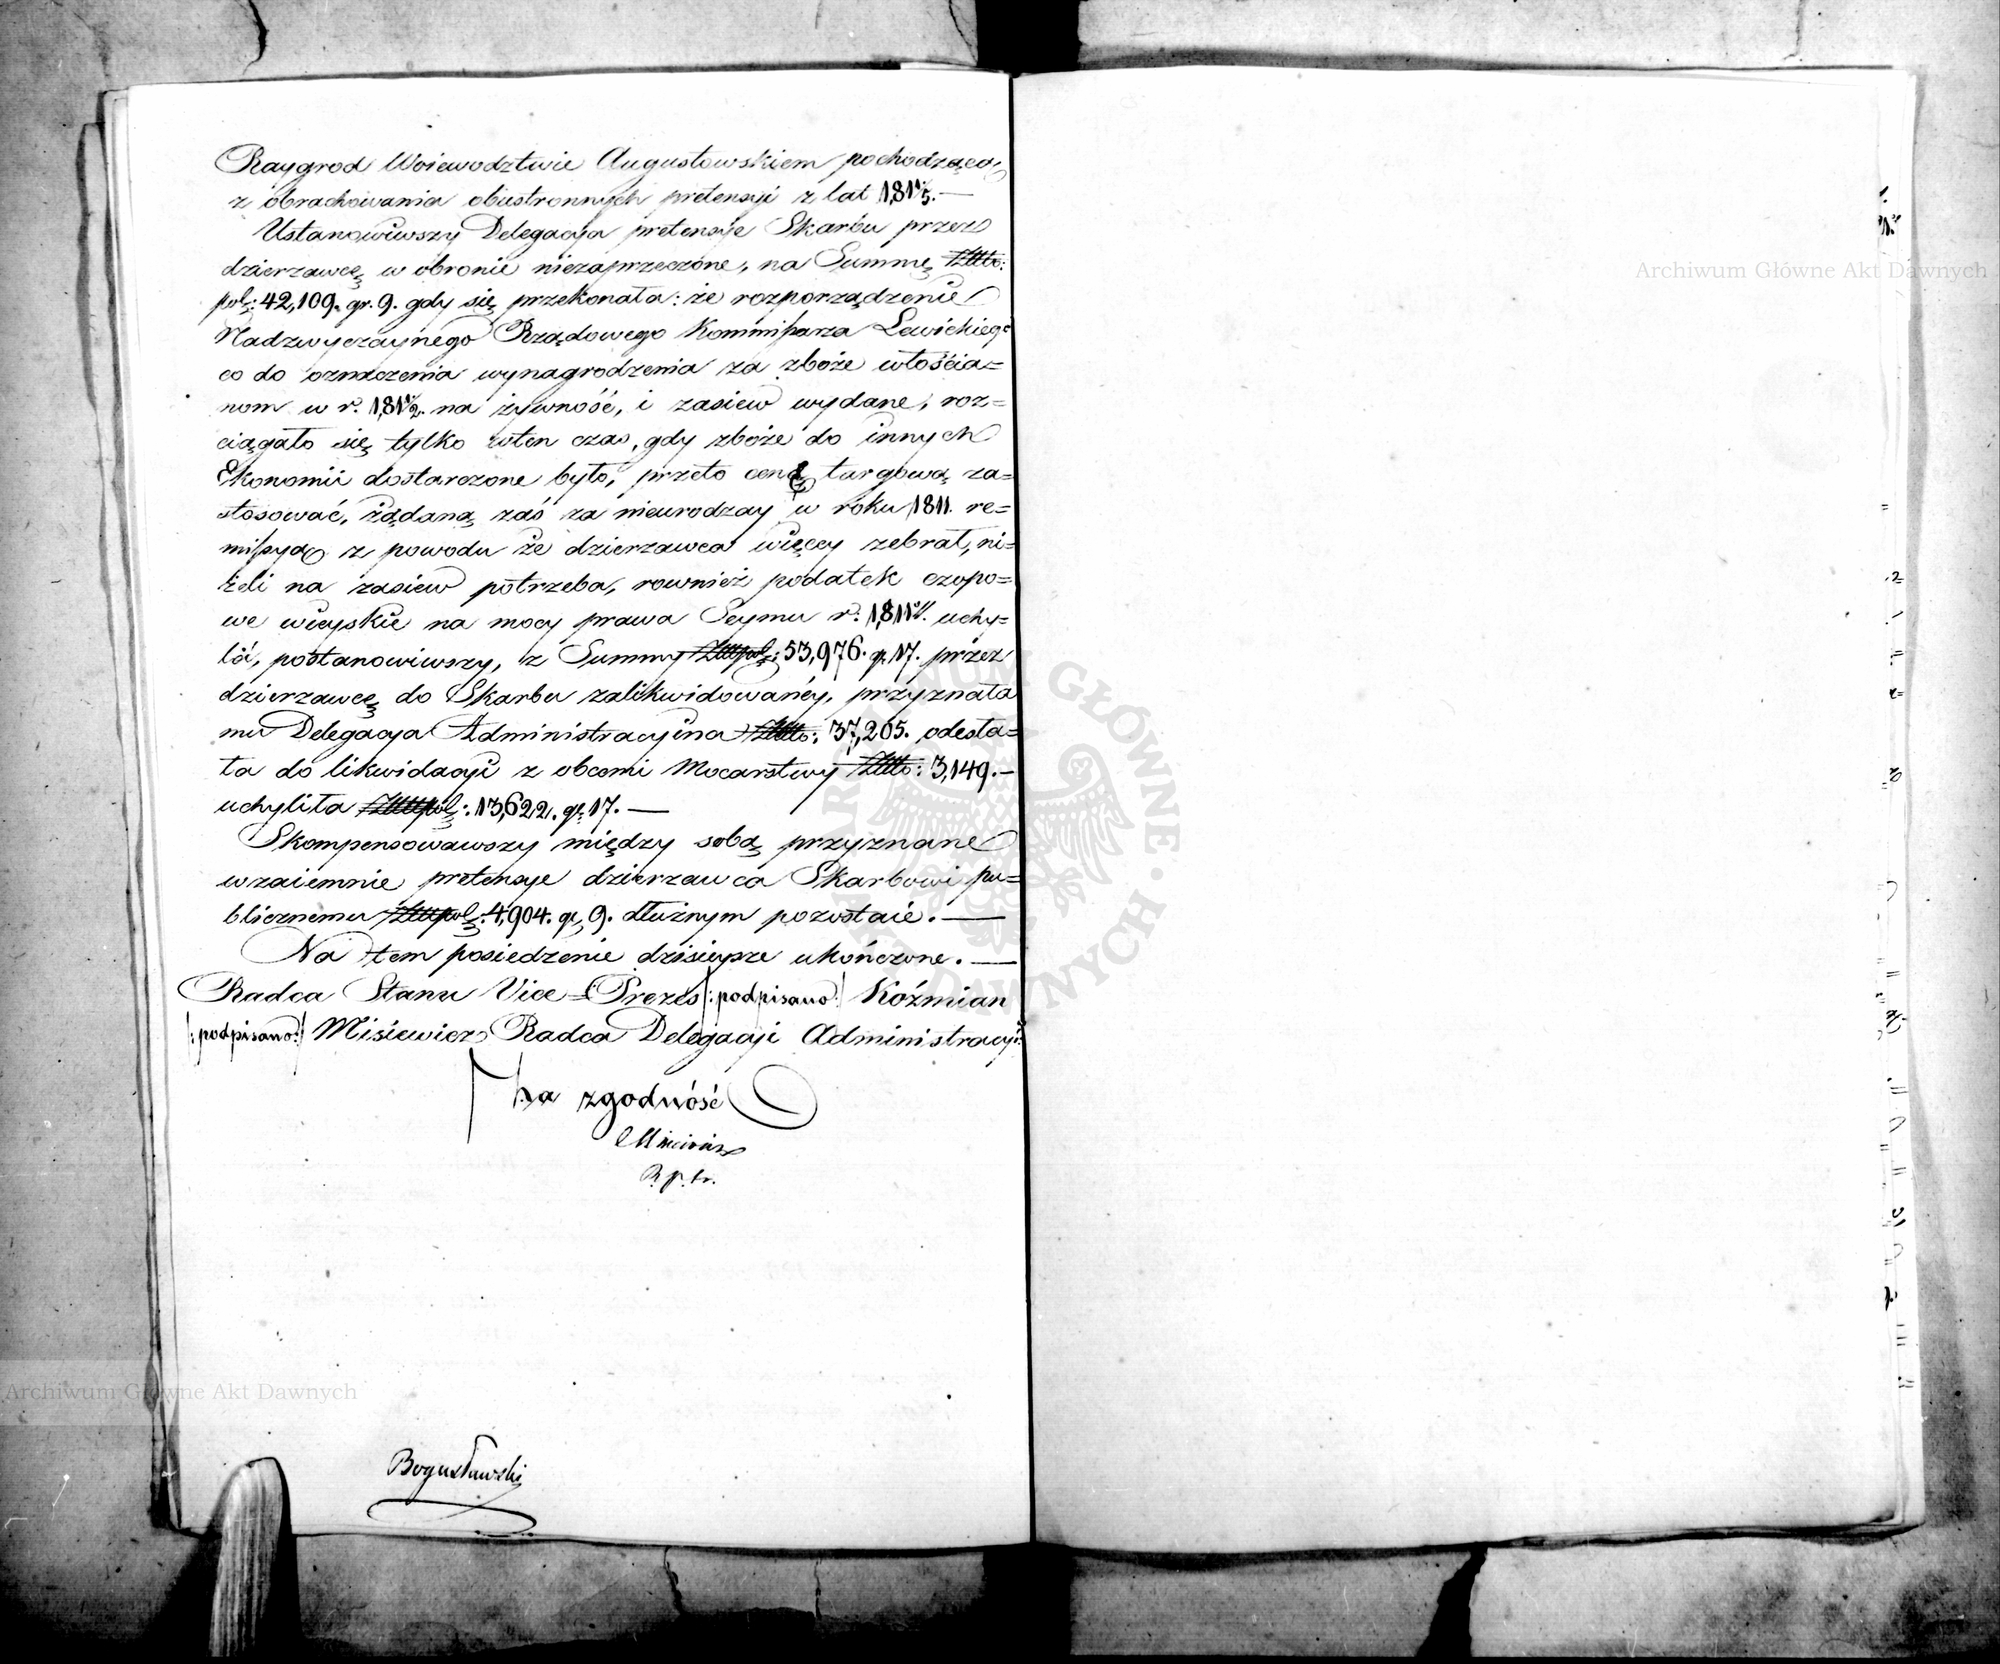 Raygrod Woiewodztwie Augustowskiem pochodzącą
z obrachowania obustronnych pretensyi z lat 181 1/5. —
Ustanowiwszy Delegacya pretensye Skarbu przez
dzierzawcę w obronie niezaprzeczone, na Summę Złłło:
pol: 42,109. gr. 9. gdy się przekonała: że rozporządzenie
Nadzwyczaynego Rządowego Kommissarza Lewickiego
co do oznaczenia wynagrodzenia za zboże włościa=
nom w r. 181 1/2. na żywność, i zasiew wydane, roz=
ciągało się tylko wten czas, gdy zboże do innych
Ekonomii dostarczone było, przeto cenę targową za=
stosować, żądaną zaś za nieurodzay w roku 1811. re=
missyą z powodu że dzierzawca więcey zebrał, ni=
żeli na zasiew potrzeba, rownież podatek czopo=
we wieyskie na mocy prawa Seymu r. uchy=
lić, postanowiwszy, z Summy Złłpol: 53,976. gr. 17. przez
dzierzawcę do Skarbu zalikwidowaney, przyznała
mu Delegacya Administracyina Złłło: 37,205. odesła=
ła do likwidacyi z obcemi Mocarstwy Złłło: 3,149. —
uchyliła Złłpol: 13,622. gr. 17. —
Skompensowawszy między sobą przyznane
wzaiemnie pretensye dzierzawca Skarbowi pu=
blicznemu Złłpol: 4,904. gr. 9. dłużnym pozostaie. —
Na tem posiedzenie dzisieysze ukończone. —
Radca Stanu Vice = Prezes /: podpisano :/ Koźmian
/: podpisano :/ Misiewicz Radca Delegacyi Administracyi:
Za zgodność
Misiewicz
Bogusławski
Archiwum Główne Akt Dawnych
Archiwum Główne Akt Dawnych
ARCHIWUM GŁÓWNE AKT DAWNYCH